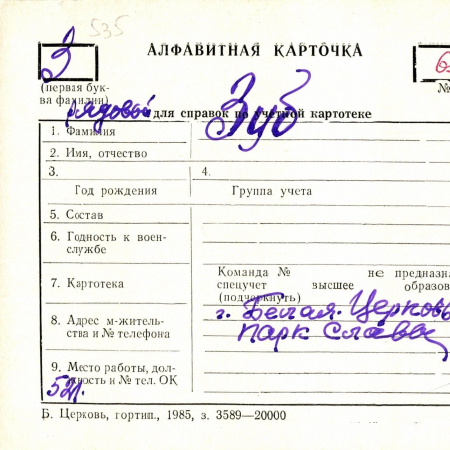 535
З
АЛФАВИТНАЯ КАРТОЧКА
(первая бук-
ва фамилии)
№
рядовой
Зуб
для справок по учетной картотеке
1. Фамилия
2. Имя, отчество
3.
4.
Год рождения
Группа учета
5. Состав
6. Годность к воен-
службе
7. Картотека
Команда № не предназна
спецучет высшее образов
(подчеркнуть)
г. Белая Церковь
парк Славы
8. Адрес м-житель-
ства и № телефона
9. Место работы, дол-
жность и № тел. ОК
521.
Б. Церковь, гортип., 1985, з. 3589—20000